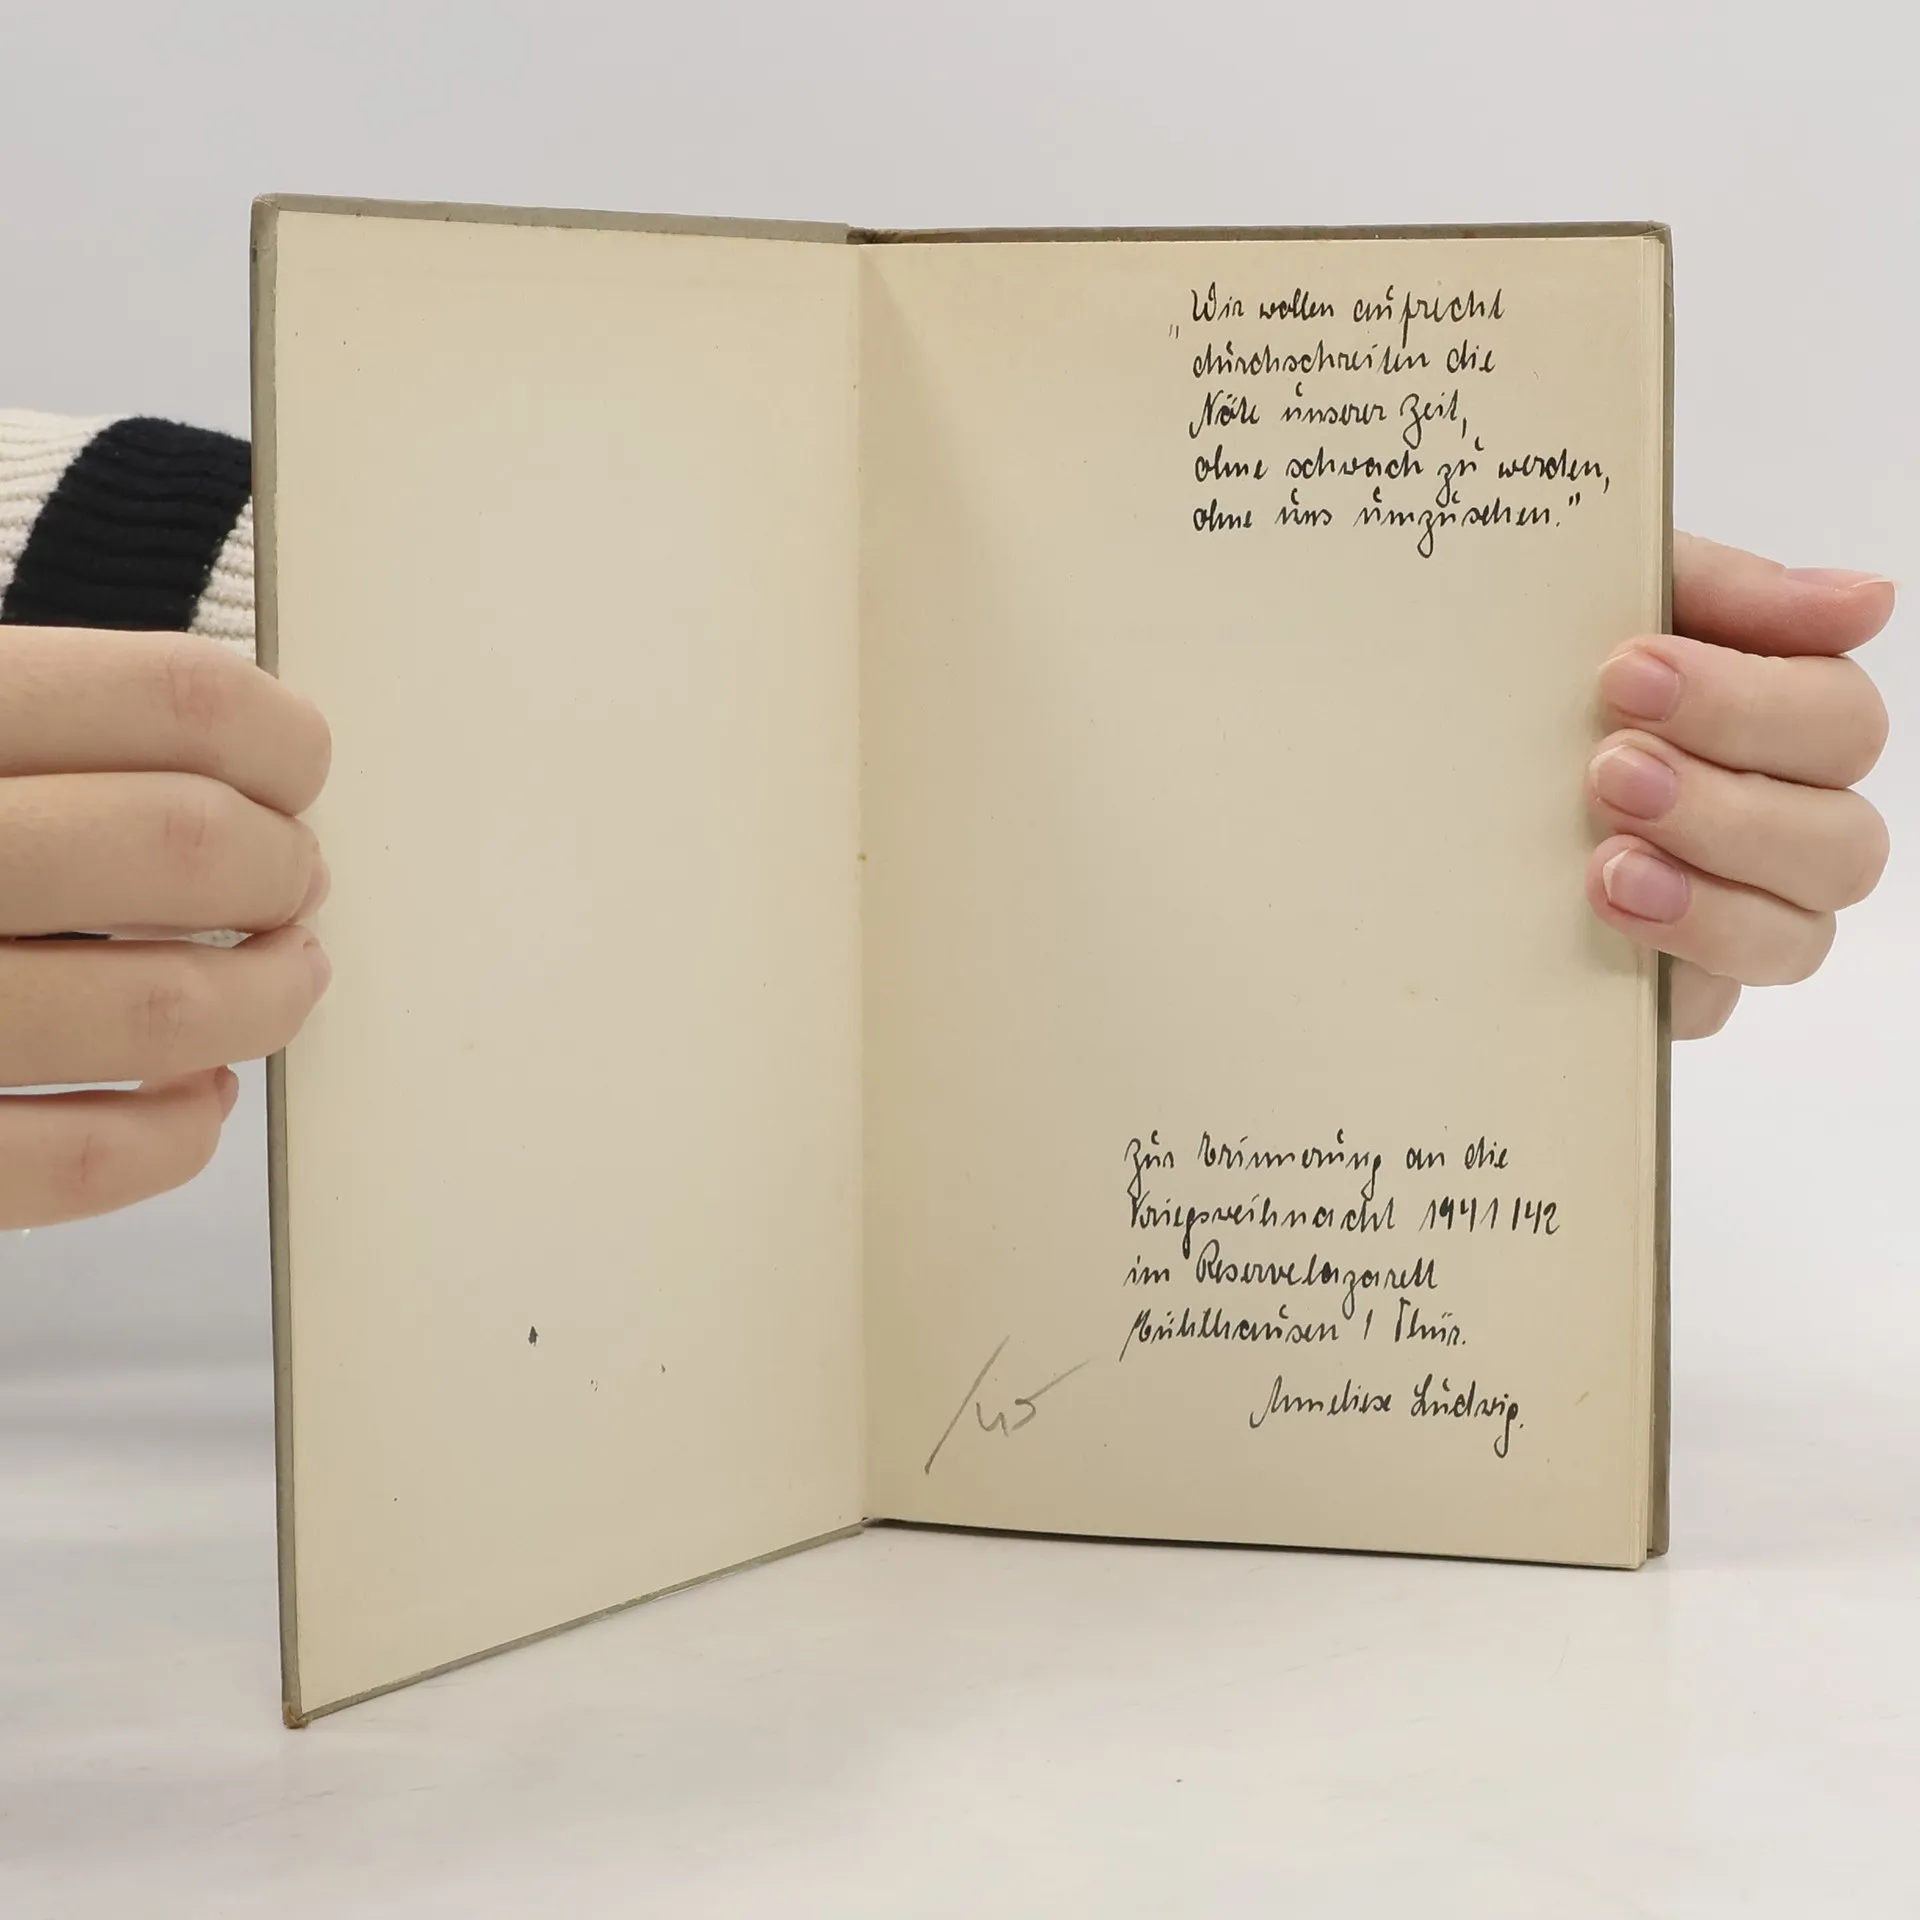 „Wir wollen aufrecht
durchschreiten die
Nöte unserer Zeit,
ohne schwach zu werden,
ohne uns umzusehen.“
Zur Erinnerung an die
Kriegsweihnacht 1941/42
im Reservelazarett
Mühlhausen / Thür.
Anneliese Ludwig.